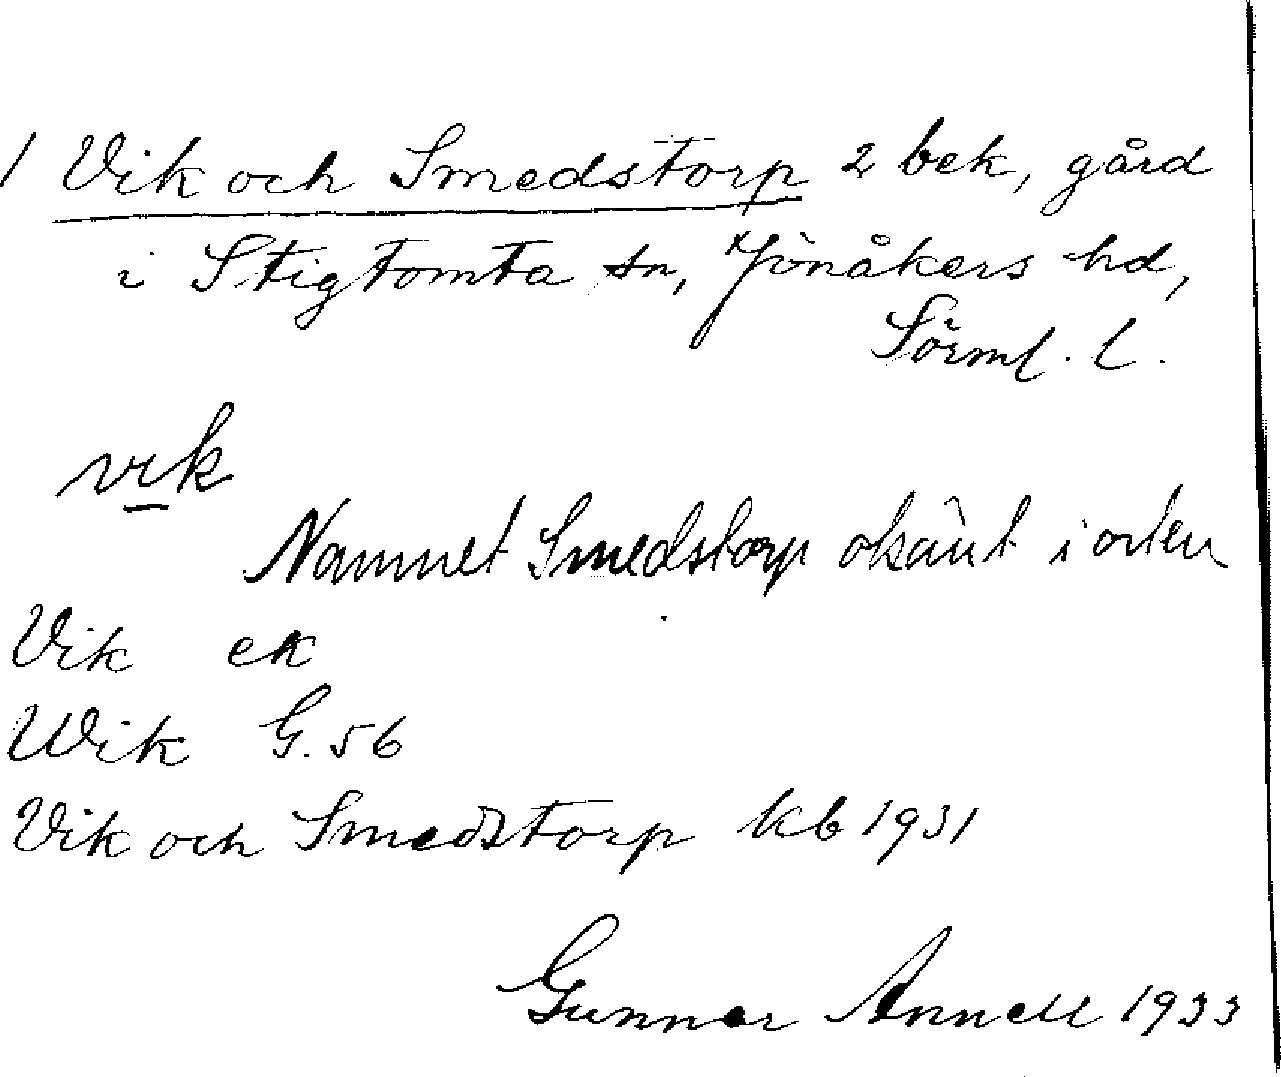 1 Vik och Smedstorp 2 bek, gård
i Stigtomta sn, Jönåkers hd,
Sörml. l.
vik
Namnet Smedstorp okänt i orten
Vik ek
Wik G. 56
Vik och Smedstorp kb 1931
Gunnar Annell 1933